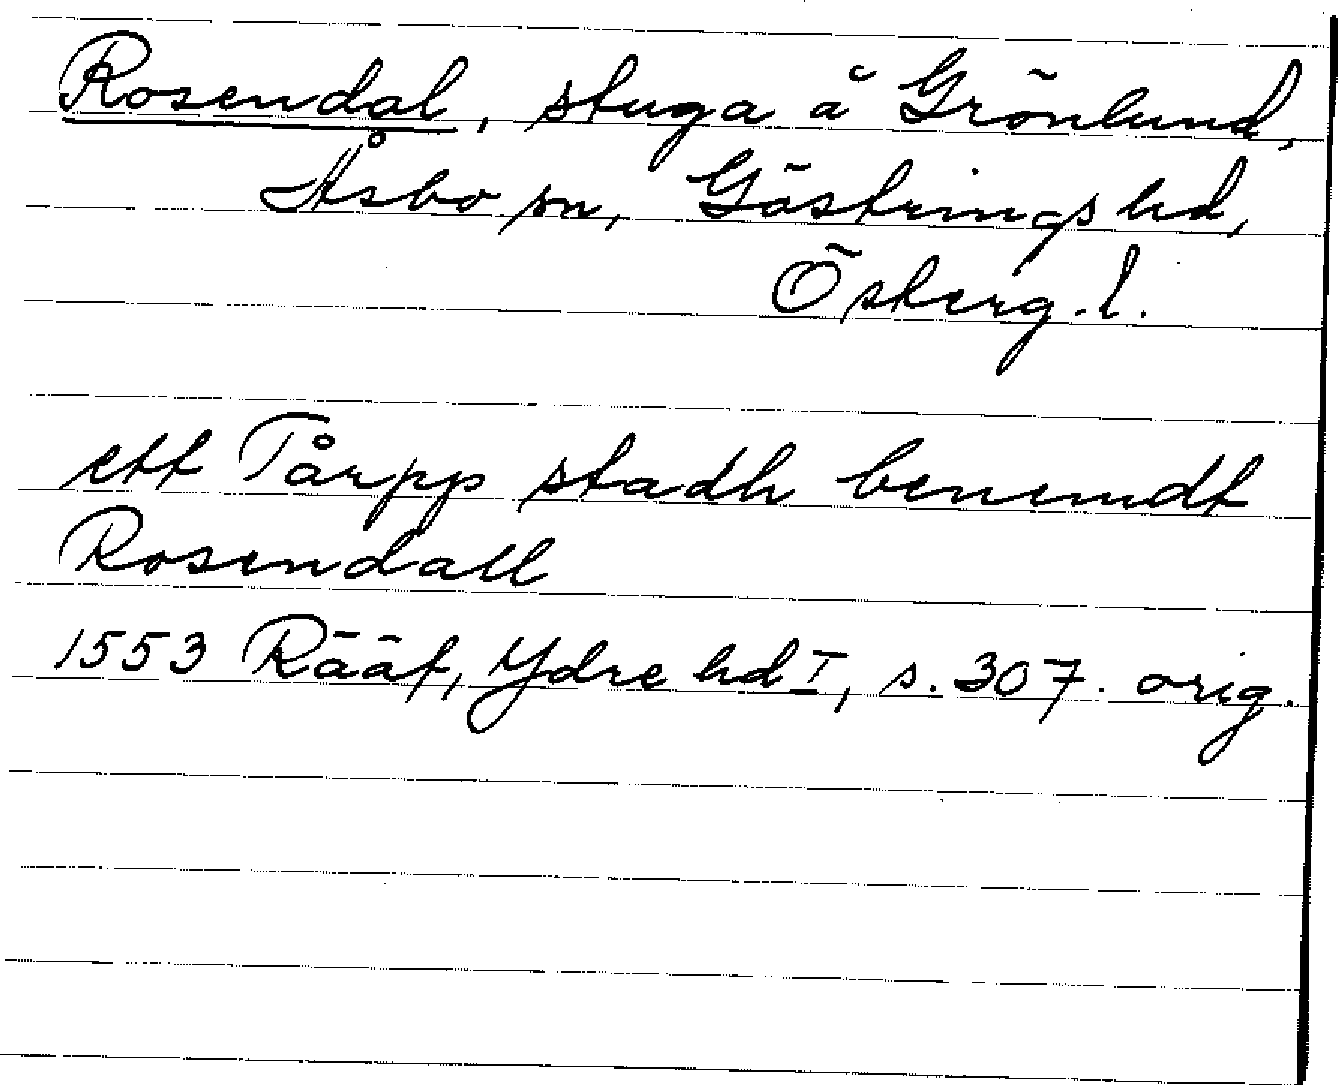 Rosendal, stuga å Grönlund,
Åsbo sn, Göstrings hd,
Österg.l.
ett Tårpp stadh benemdt
Rosendall
1553 Rääf, Ydre hd I, s. 307. orig.